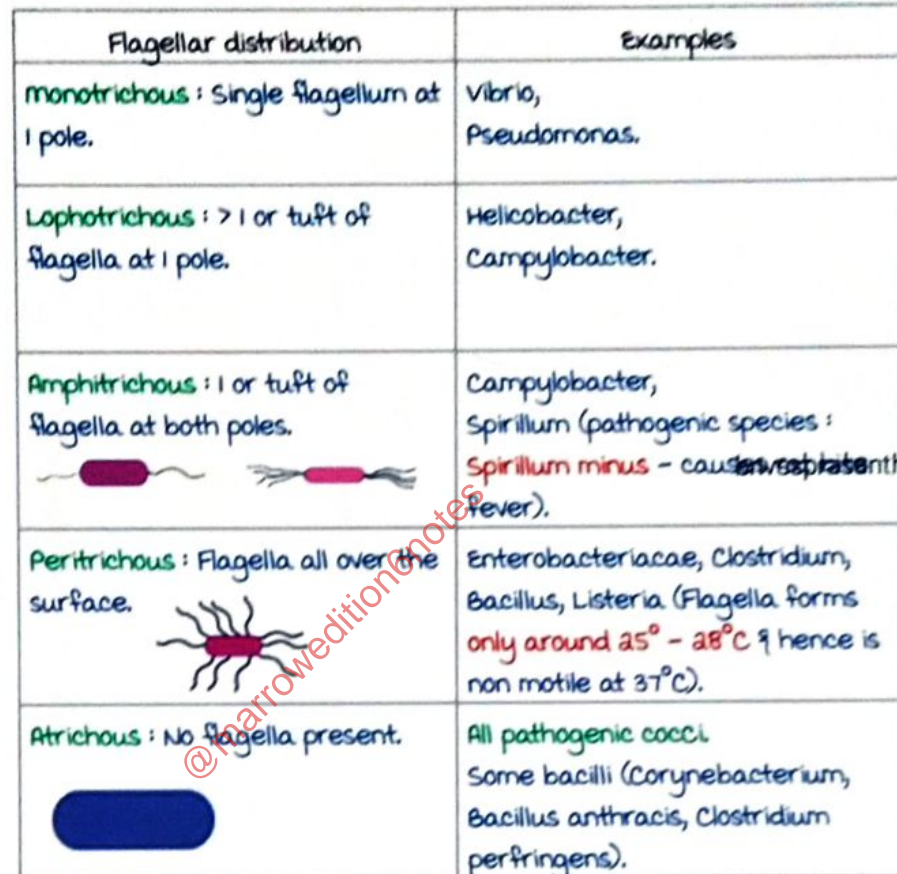 Flagellar distribution
Examples
monotrichous : Single flagellum at
1 pole.
Vibrio,
Pseudomonas.
Lophotrichous : > 1 or tuft of
flagella at 1 pole.
Helicobacter,
Campylobacter.
Amphitrichous : 1 or tuft of
flagella at both poles.
Campylobacter,
Spirillum (pathogenic species :
Spirillum minus - causes
fever).
Peritrichous : Flagella all over the
surface.
Enterobacteriacae, Clostridium,
Bacillus, Listeria (Flagella forms
only around 25° - 28°C & hence is
non motile at 37°C).
Atrichous : No flagella present.
All pathogenic cocci.
Some bacilli (Corynebacterium,
Bacillus anthracis, Clostridium
perfringens).
@marrowedition6notes